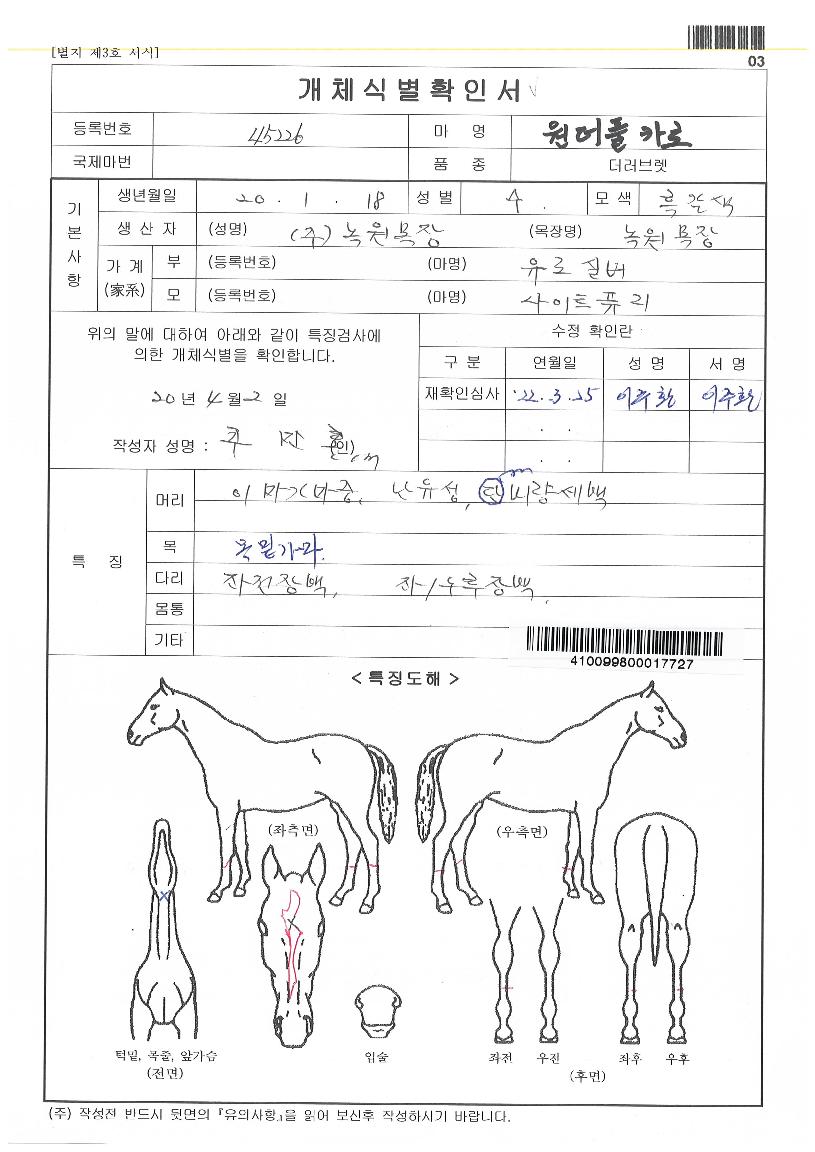 [별지 제3호 서식]
03
개체식별확인서
등록번호 45226 마 명 원더풀카로
국제마번 품 종 더러브렛
기본사항
생년월일 20 . 1 . 18 성 별 모 색 흑갈색
생 산 자 (성명) (주)녹원목장 (목장명) 녹원목장
가 계 (家系) 부 (등록번호) (마명) 유로실버
모 (등록번호) (마명) 사이트퓨리
위의 말에 대하여 아래와 같이 특징검사에
의한 개체식별을 확인합니다.
20 년 4 월 2 일
작성자 성명 : (인)
수정 확인란
구 분 연월일 성 명 서 명
재확인심사 '22. 3. 25 이주환 이주환
. .
. .
특 징
머리 비량세백
목 목밑가마.
다리 좌전장백, 좌/우후장백,
몸통
기타
410099800017727
< 특징도해 >
(좌측면) (우측면)
턱밑, 목줄, 앞가슴 입술 좌전 우전 좌후 우후
(전면) (후면)
(주) 작성전 반드시 뒷면의 『유의사항』을 읽어 보신후 작성하시기 바랍니다.